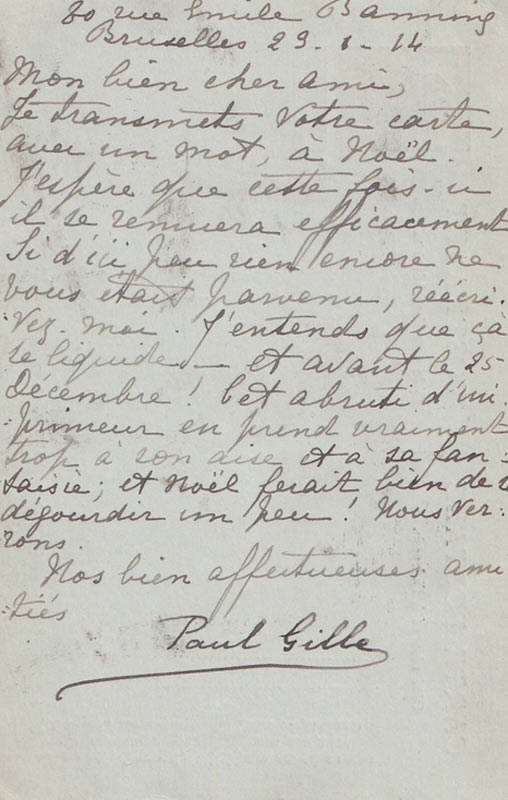 rue Emile Banning
Bruxelles 29-1-14
Mon bien cher ami,
Je transmets votre carte,
avec un mot, à Noël.
J'espère que cette fois-ci
il se remuera efficacement
Si d'ici peu rien encore ne
vous était parvenu, réécri-
vez-moi. J'entends que çà
se liquide — et avant le 25
Décembre! Cet abruti d'im-
primeur en prend vraiment
trop à son aise et à sa fan-
taisie; et Noël ferait bien de
dégourdir un peu! Nous ver-
rons.
Nos bien affectueuses ami
-tiés
Paul Gille